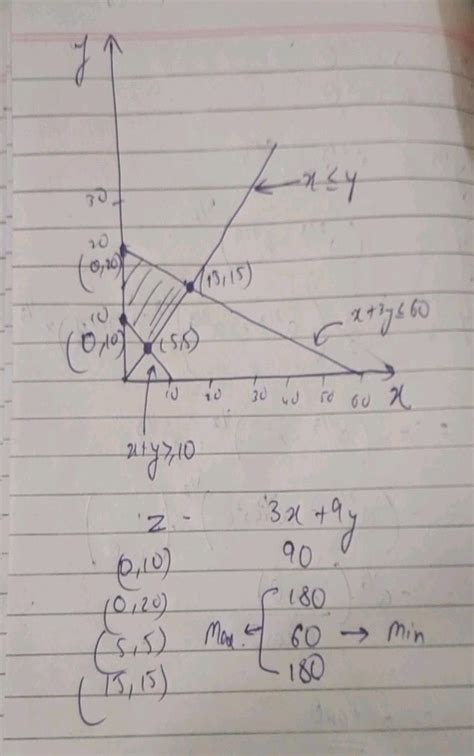 y
30
x ≤ y
20
(0,20)
(15,15)
10
(0,10)
(5,5)
x+3y≤60
10 20 30 40 50 60
x
x+y≥10
Z - 3x+9y
(0,10) 90
(0,20) 180
(5,5) Max. 60 → Min
(15,15) 180